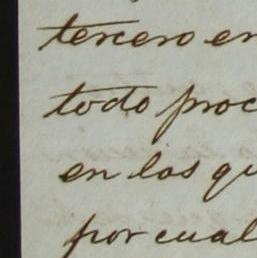 tercero en
todo proc
en los qu
por cual